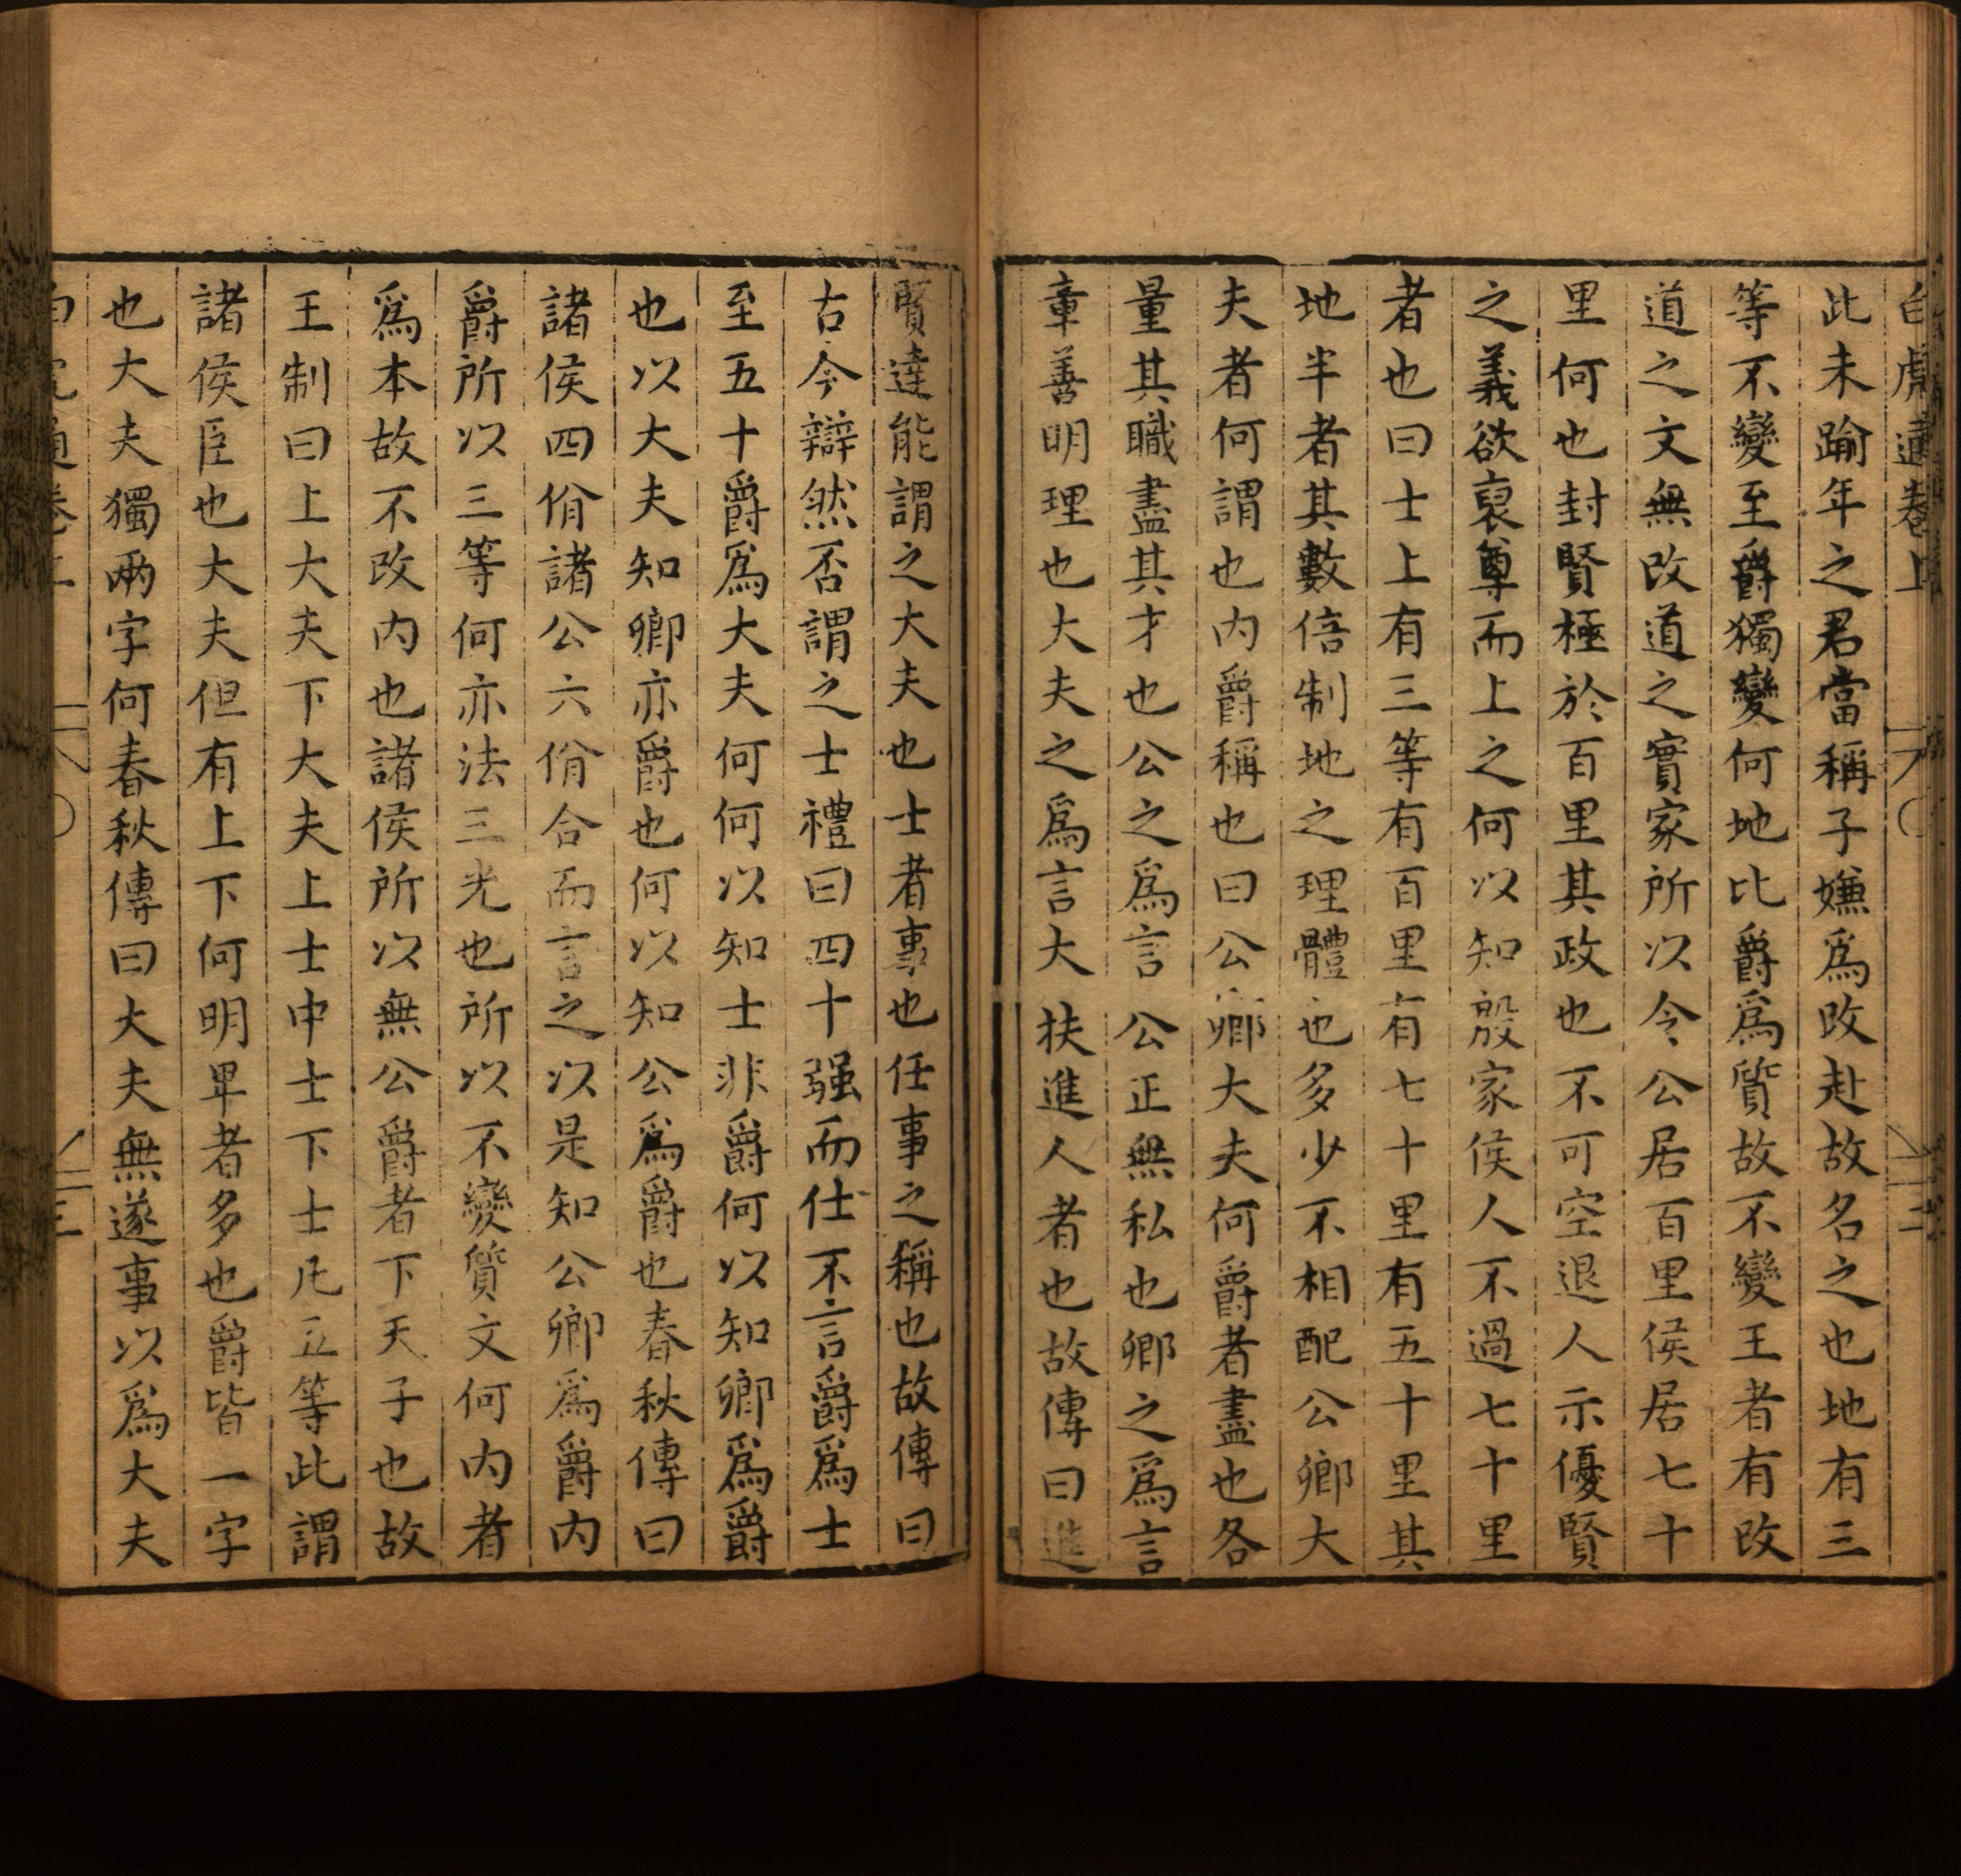 白虎通卷上
此未踰年之君當稱子嫌爲改赴故名之也地有三
等不變至爵獨變何地比爵爲質故不變王者有改
道之文無改道之實家所以令公居百里侯居七十
里何也封賢極於百里其政也不可空退人示優賢
之義欲裒尊而上之何以知殷家侯人不過七十里
者也曰士上有三等有百里有七十里有五十里其
地半者其數倍制地之理體也多少不相配公卿大
夫者何謂也内爵稱也曰公卿大夫何爵者盡也各
量其職盡其才也公之爲言公正無私也卿之爲言
章善明理也大夫之爲言大扶進人者也故傳曰進
賢達能謂之大夫也士者事也任事之稱也故傳曰
古今辯然否謂之士禮曰四十强而仕不言爵爲士
至五十爵爲大夫何何以知士非爵何以知卿爲爵
也以大夫知卿亦爵也何以知公爲爵也春秋傳曰
諸侯四佾諸公六佾合而言之以是知公卿爲爵内
爵所以三等何亦法三光也所以不變質文何内者
爲本故不改内也諸侯所以無公爵者下天子也故
王制曰上大夫下大夫上士中士下士凡五等此謂
諸侯臣也大夫但有上下何明卑者多也爵皆一字
也大夫獨兩字何春秋傳曰大夫無遂事以爲大夫